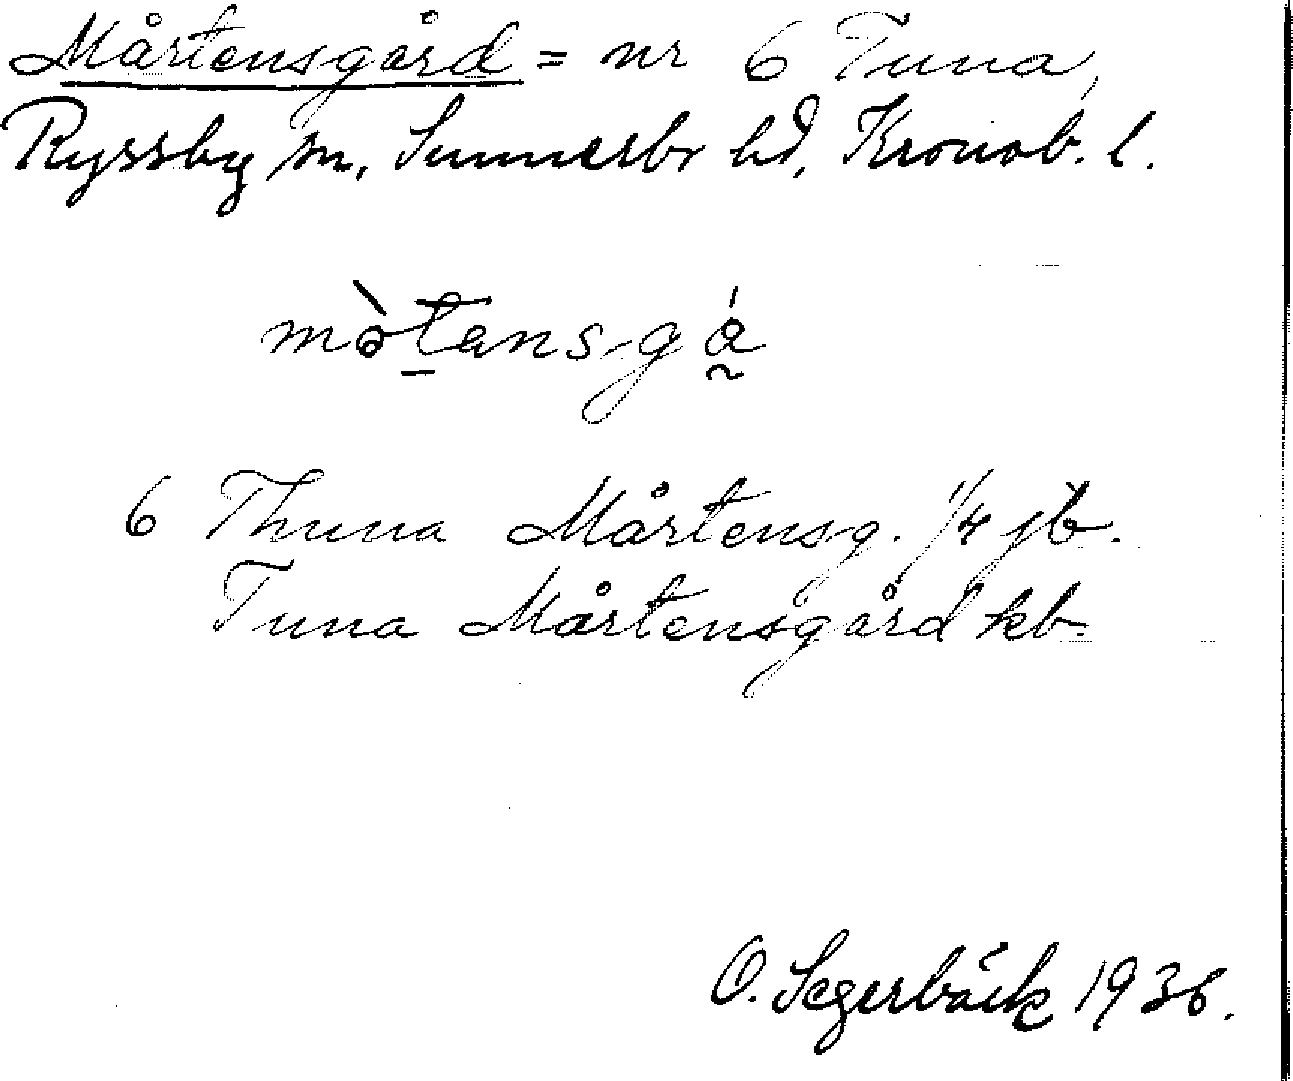 Mårtensgård = nr 6 Tuna,
Ryssby sn, Sunnerbo hd, Kronob. l.
mò̀tans-gá
6 Thuna Mårtensg. 1/4 jb.
Tuna Mårtensgård kb.
O. Segerbäck 1936.